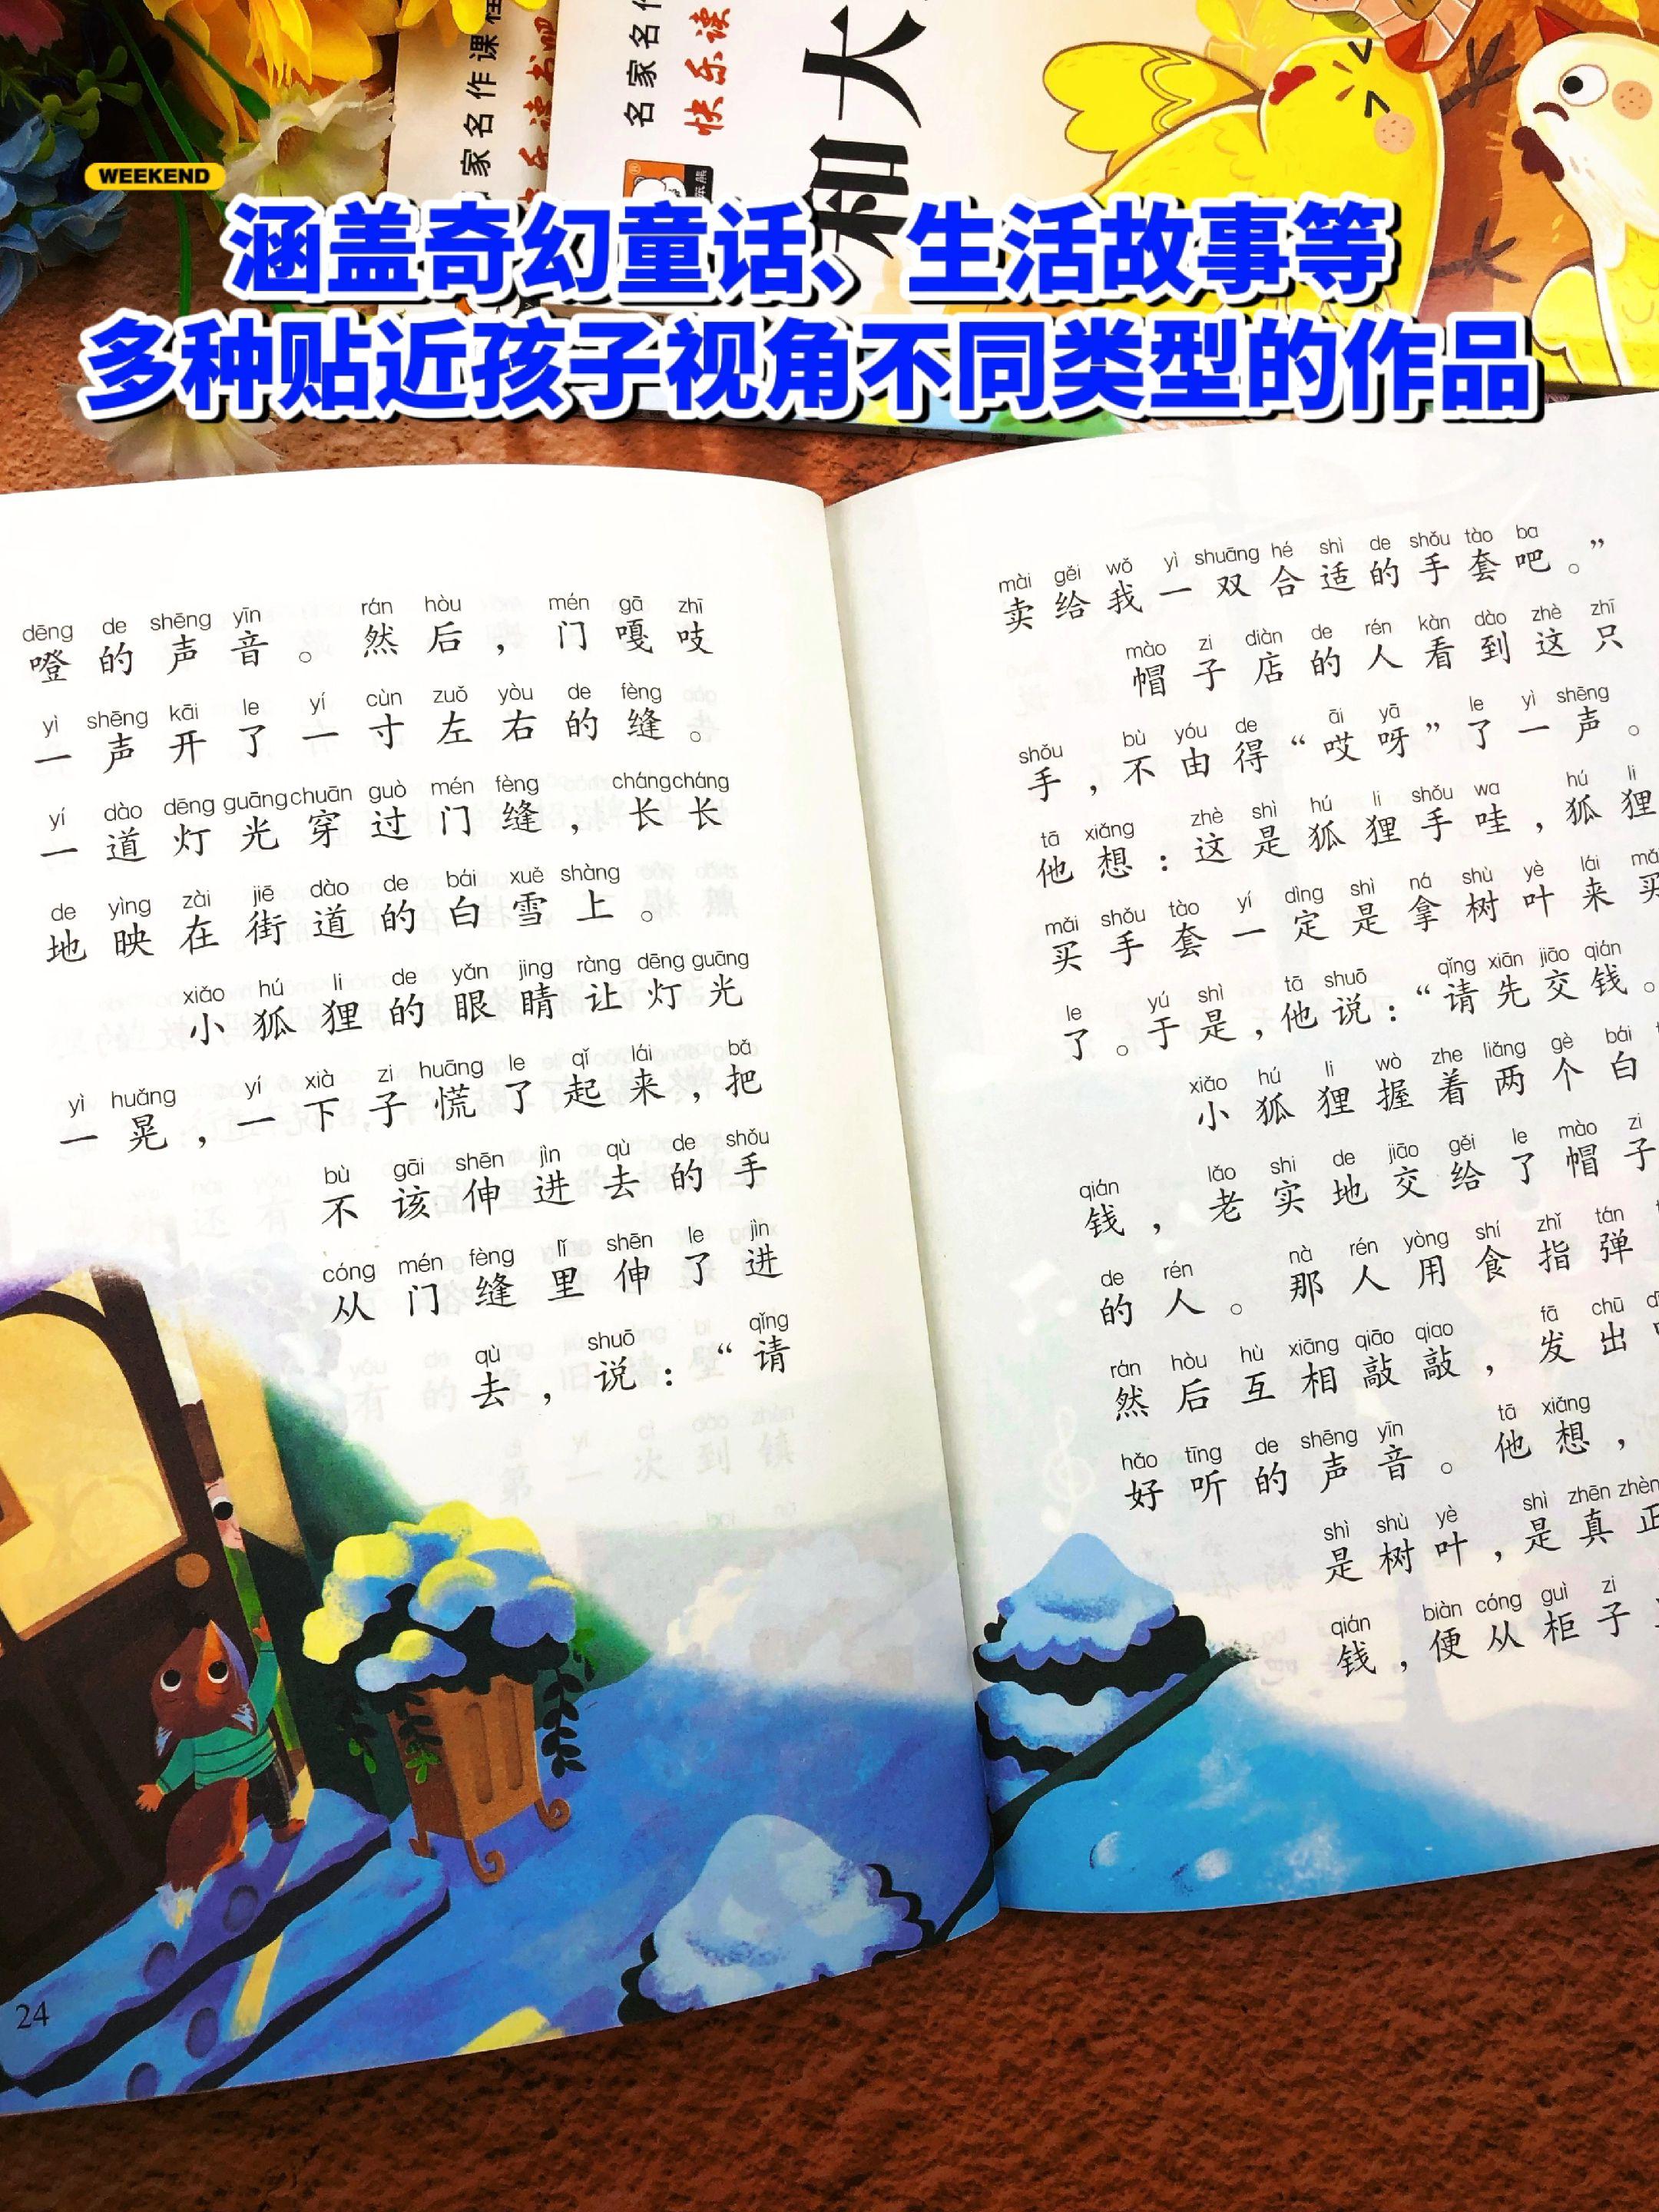 名家名作课程
快乐读书吧
名家名作
快乐读
和大
WEEKEND
涵盖奇幻童话、生活故事等
多种贴近孩子视角不同类型的作品
dēng de shēng yīn rán hòu mén gā zhī
噔的声音。然后，门嘎吱
yì shēng kāi le yí cùn zuǒ yòu de fèng
一声开了一寸左右的缝。
yí dào dēng guāng chuān guò mén fèng cháng cháng
一道灯光穿过门缝，长长
de yìng zài jiē dào de bái xuě shàng
地映在街道的白雪上。
xiǎo hú li de yǎn jing ràng dēng guāng
小狐狸的眼睛让灯光
yì huǎng yí xià zi huāng le qǐ lái bǎ
一晃，一下子慌了起来，把
bù gāi shēn jìn qù de shǒu
不该伸进去的手
cóng mén fèng lǐ shēn le jìn
从门缝里伸了进
qù shuō qǐng
去，说：“请
24
mài gěi wǒ yì shuāng hé shì de shǒu tào ba
卖给我一双合适的手套吧。”
mào zi diàn de rén kàn dào zhè zhī
帽子店的人看到这只
shǒu bù yóu de āi yā le yì shēng
手，不由得“哎呀”了一声。
tā xiǎng zhè shì hú li shǒu wa hú li
他想：这是狐狸手哇，狐狸
mǎi shǒu tào yí dìng shì ná shù yè lái mǎi
买手套一定是拿树叶来买
le yú shì tā shuō qǐng xiān jiāo qián
了。于是，他说：“请先交钱。
xiǎo hú li wò zhe liǎng gè bái
小狐狸握着两个白
qián lǎo shi de jiāo gěi le mào zi
钱，老实地交给了帽子
de rén nà rén yòng shí zhǐ tán
的人。那人用食指弹
rán hòu hù xiāng qiāo qiao fā chū
然后互相敲敲，发出
hǎo tīng de shēng yīn tā xiǎng
好听的声音。他想，
shì shù yè shì zhēn zhèn
是树叶，是真正
qián biàn cóng guì zi
钱，便从柜子